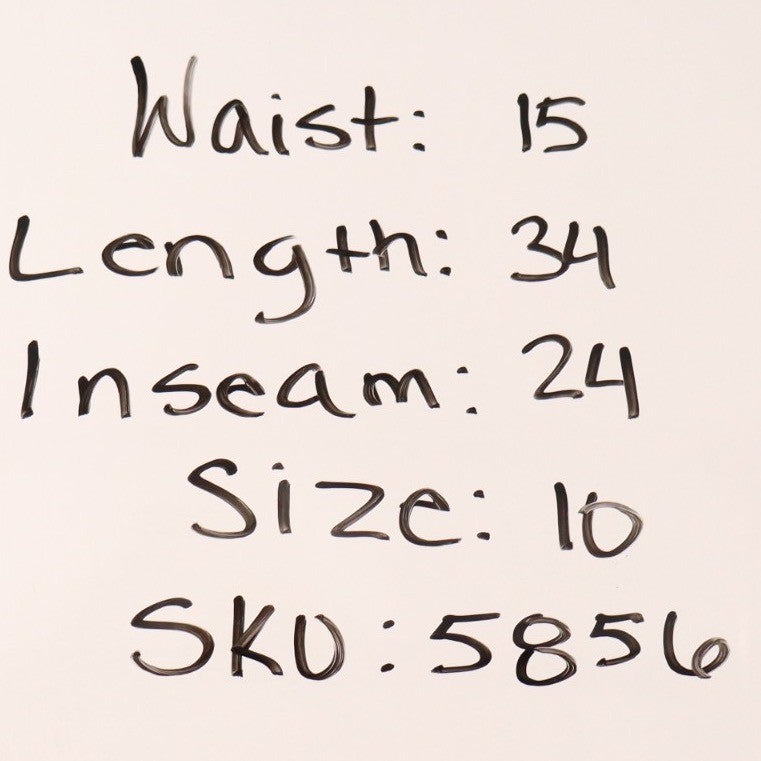 Waist: 15
Length: 34
Inseam: 24
Size: 10
SKU: 5856